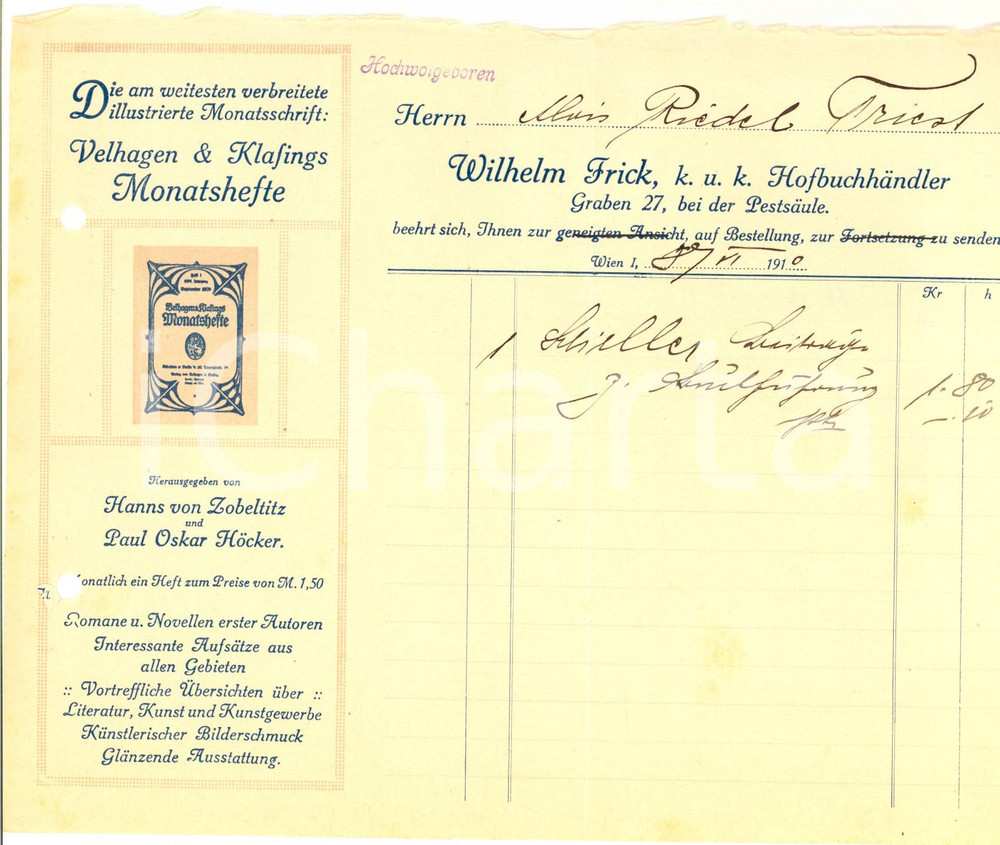 Die am weitesten verbreitete
illustrierte Monatsschrift:
Velhagen & Klasings
Monatshefte
Heft 1
September 1909
Velhagen & Klasings
Monatshefte
Herausgegeben von
Hanns von Zobeltitz
und
Paul Oskar Höcker.
onatlich ein Heft zum Preise von M. 1,50
Romane u. Novellen erster Autoren
Interessante Aufsätze aus
allen Gebieten
:: Vortreffliche Übersichten über ::
Literatur, Kunst und Kunstgewerbe
Künstlerischer Bilderschmuck
Glänzende Ausstattung.
Hochwolgeboren
Herrn Alois Riedel Triest
Wilhelm Frick, k. u. k. Hofbuchhändler
Graben 27, bei der Pestsäule.
beehrt sich, Ihnen zur geneigten Ansicht, auf Bestellung, zur Fortsetzung zu senden
Wien I, VI 1910
Kr h
1 Beiträge
z. 1.80
-.10
iCharta